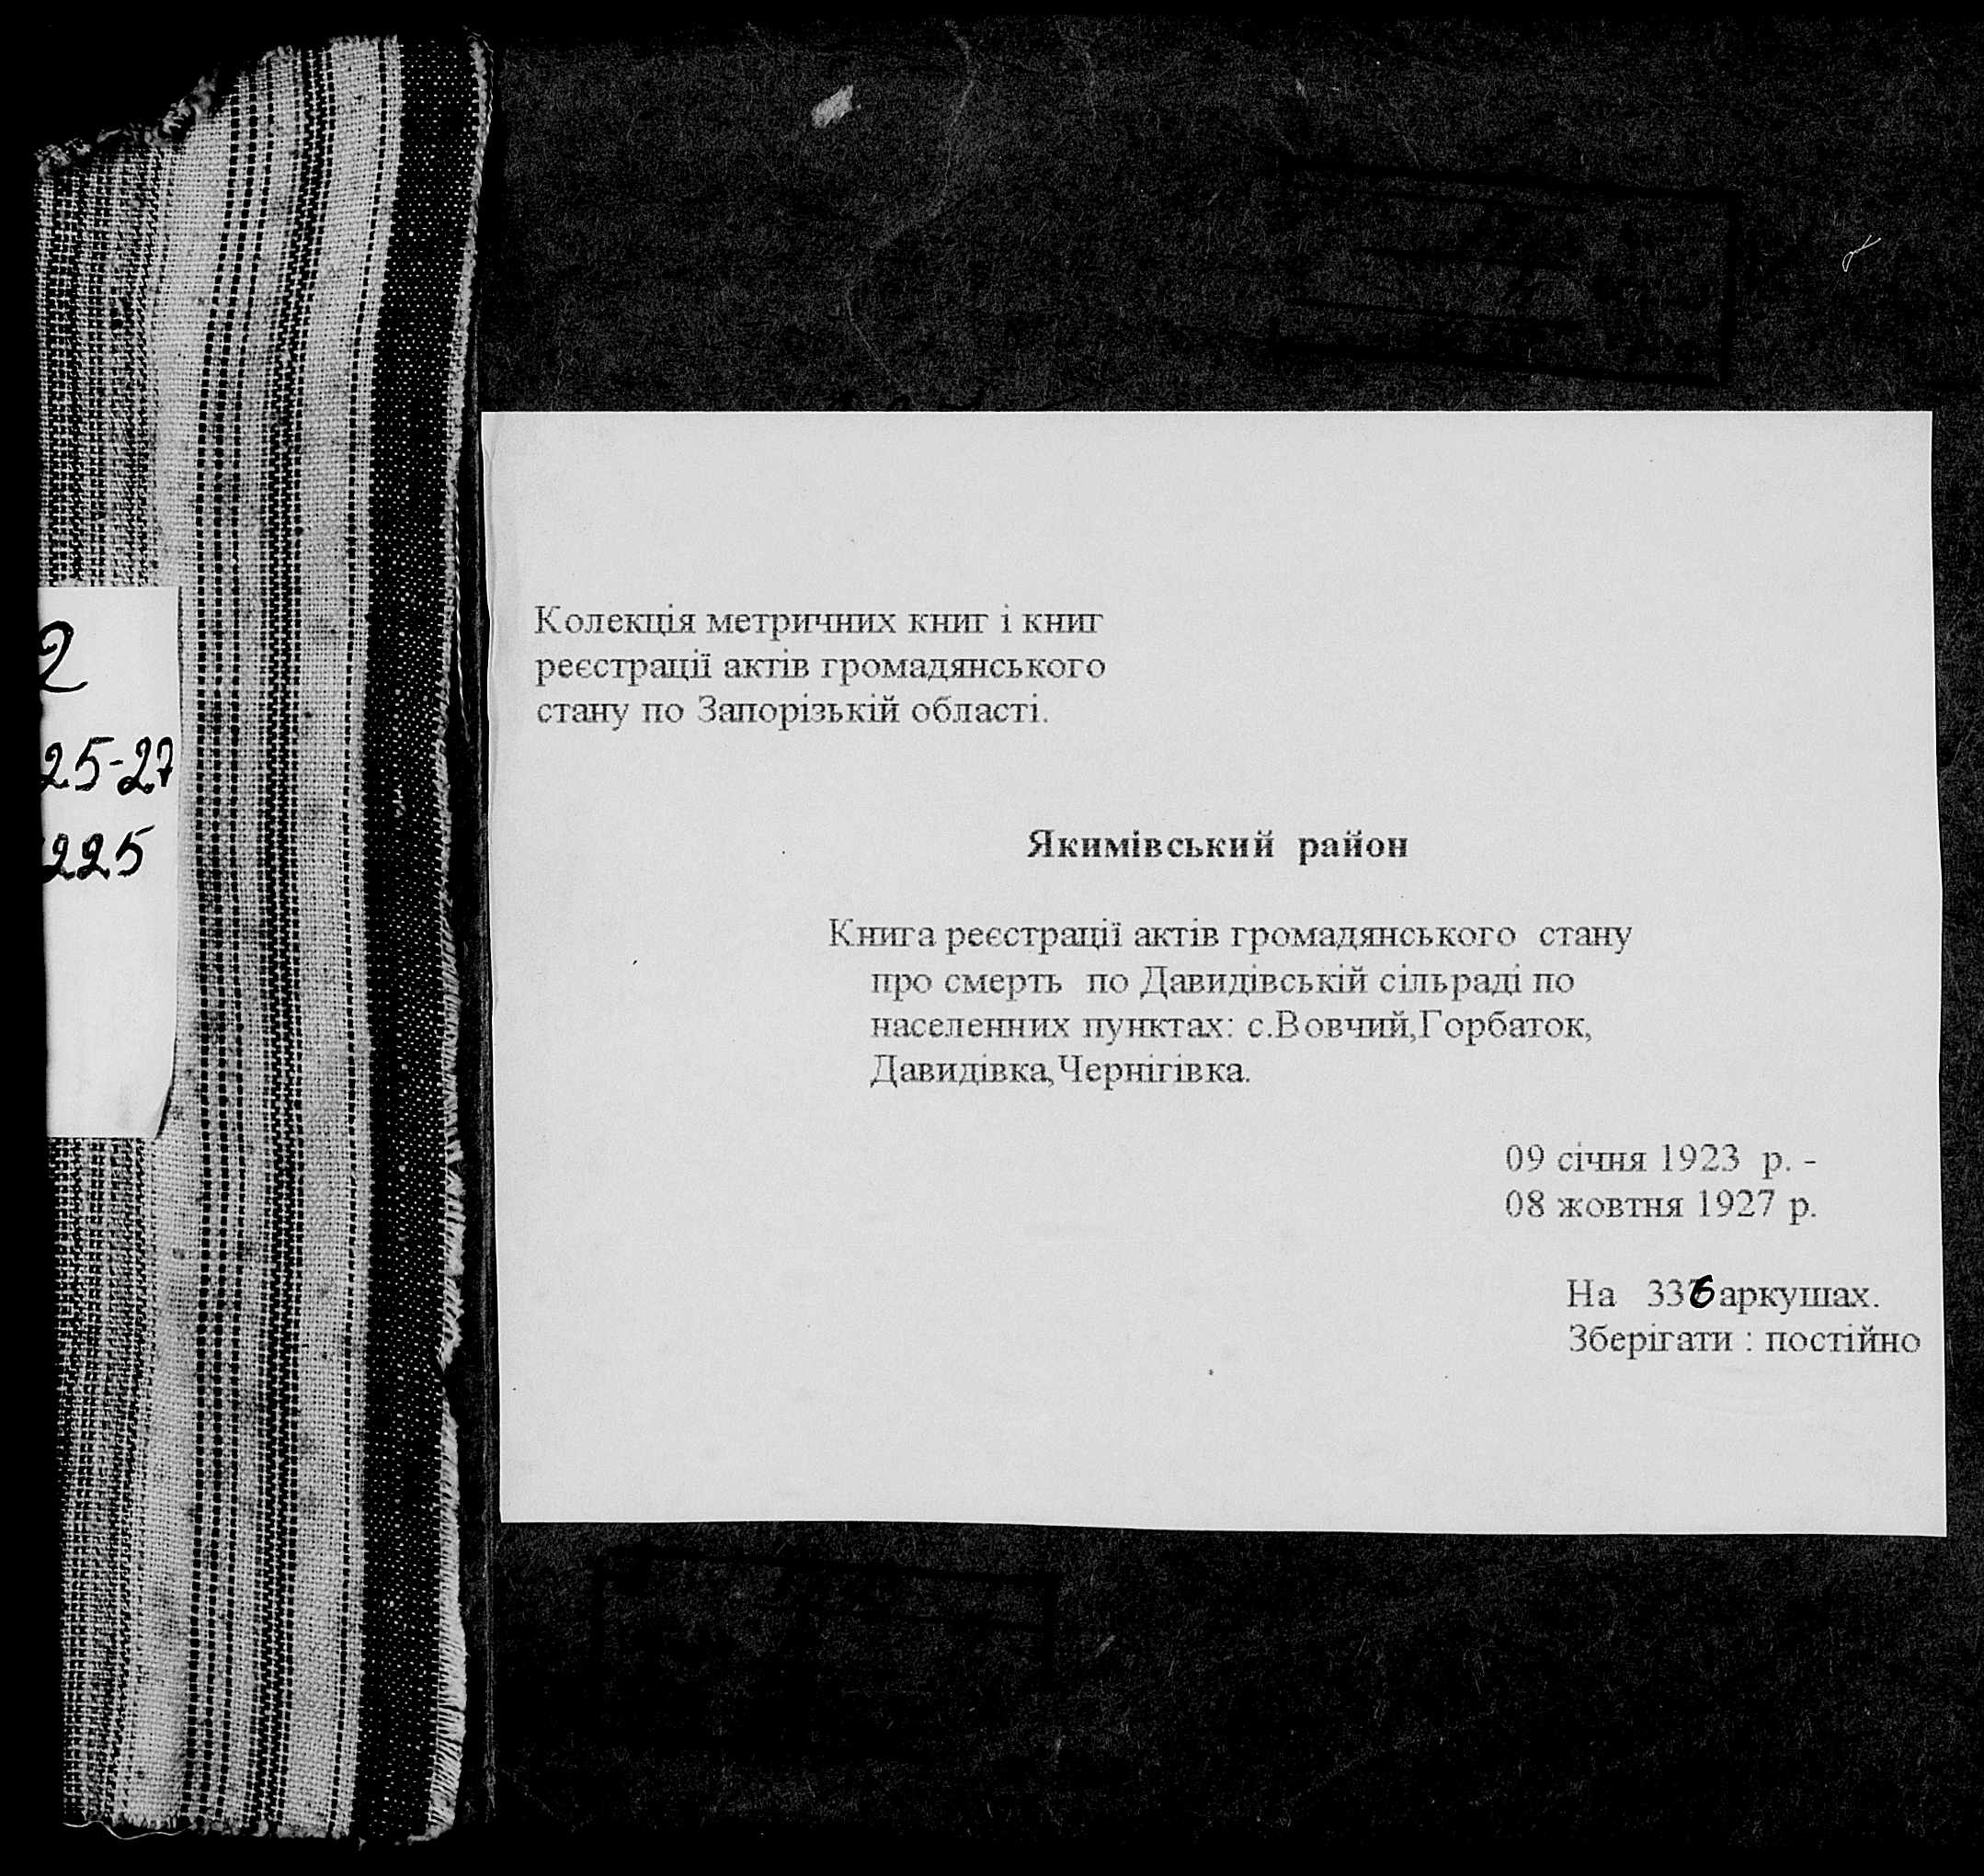 2
25-27
225
Колекція метричних книг і книг
реєстрації актів громадянського
стану по Запорізькій області.
Якимівський район
Книга реєстрації актів громадянського стану
про смерть по Давидівській сільраді по
населенних пунктах: с.Вовчий,Горбаток,
Давидівка,Чернігівка.
09 січня 1923 р. -
08 жовтня 1927 р.
На 336 аркушах.
Зберігати : постійно